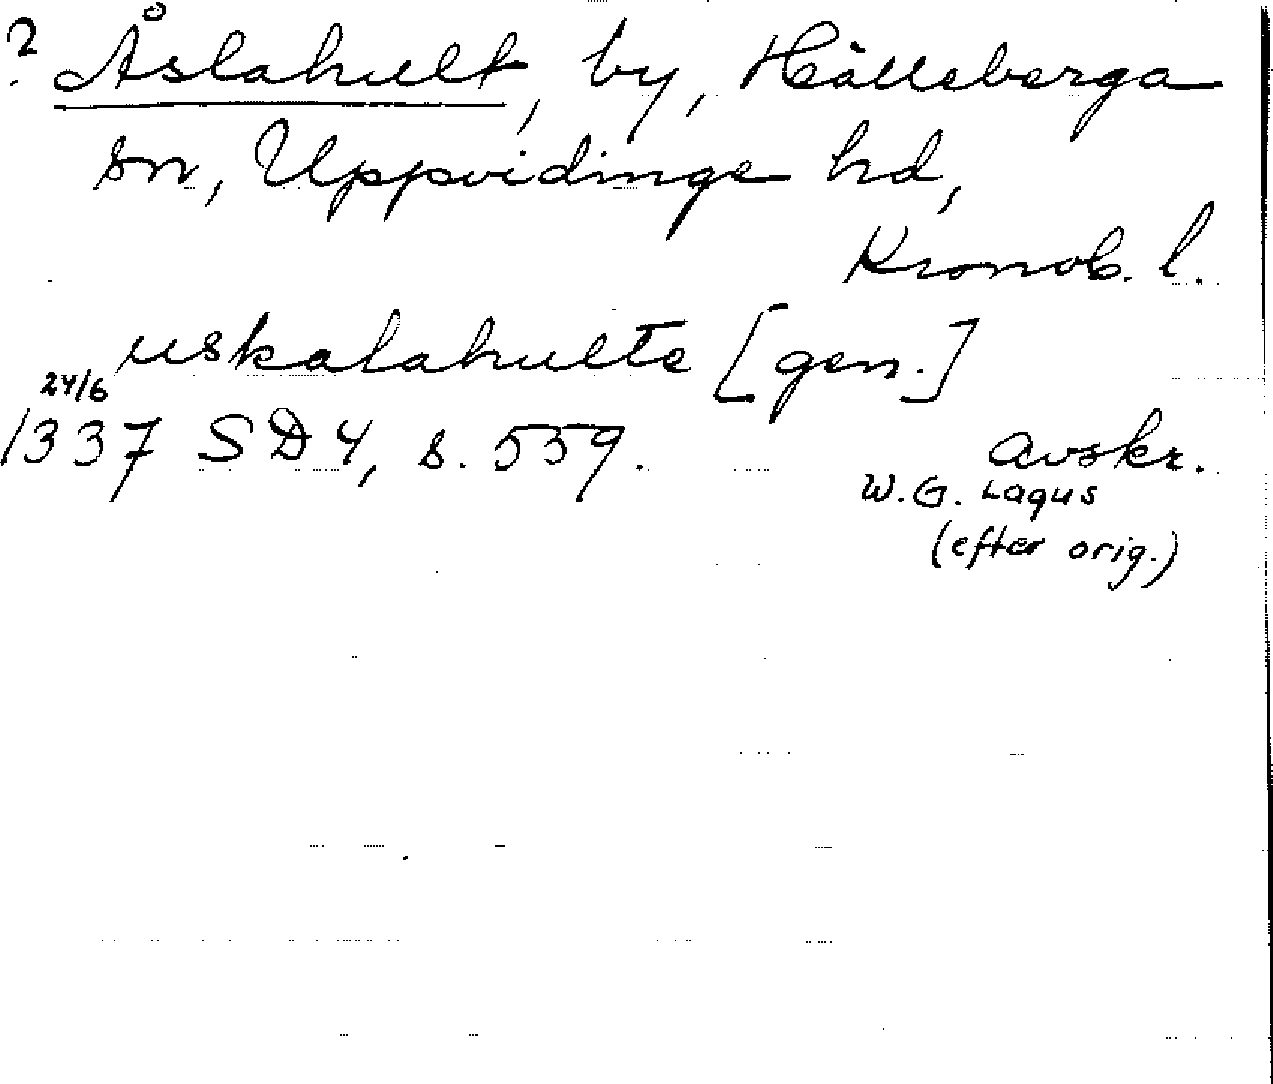 ? Åslahult, by, Hälleberga
sn, Uppvidinge hd,
Kronob. l.
uskalahulte [gen.]
24/6
1337 SD4, s. 559. Avskr.
W.G. Lagus
(efter orig.)